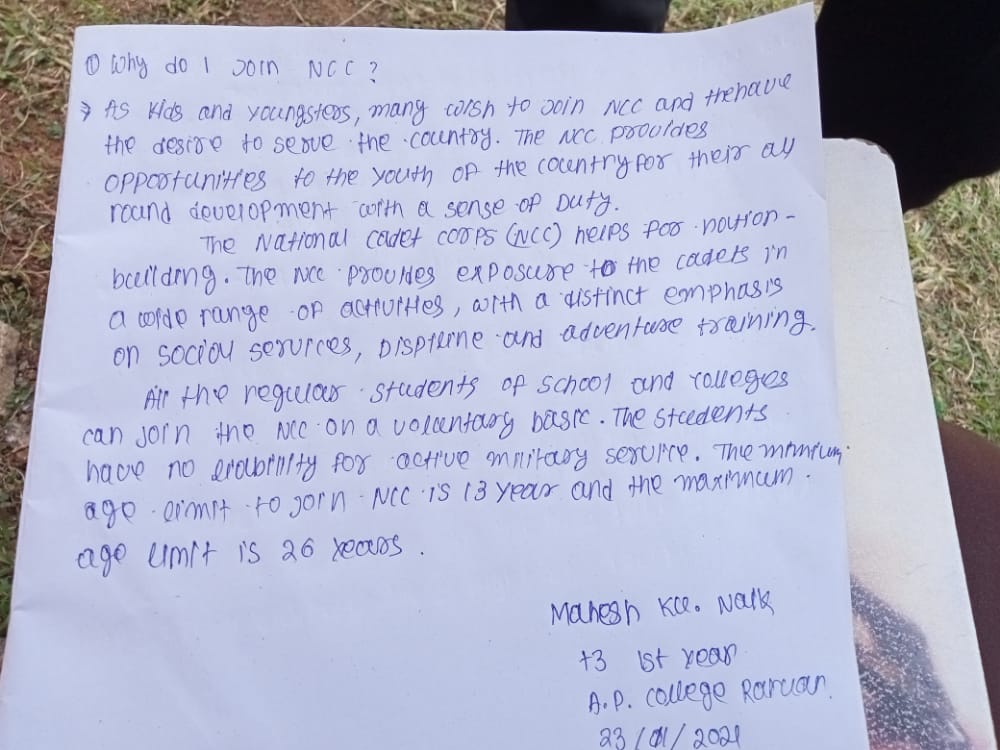 ① Why do I Join NCC?
→ As kids and youngsters, many wish to join NCC and the have
the desire to serve the country. The NCC provides
opportunities to the youth of the country for their all
round development with a sense of Duty.
The National cadet corps (NCC) helps for nation-
building. The NCC provides exposure to the cadets in
a wide range of activities, with a distinct emphasis
on social services, Displine and adventure training.
All the regular students of school and colleges
can join the NCC on a voluntary basic. The students
have no liability for active military service. The minimum
age limit to join NCC is 13 year and the maximum
age limit is 26 years.
Mahesh Ku. Naik
+3 1st year
A.P. college Raruan.
23/01/2021